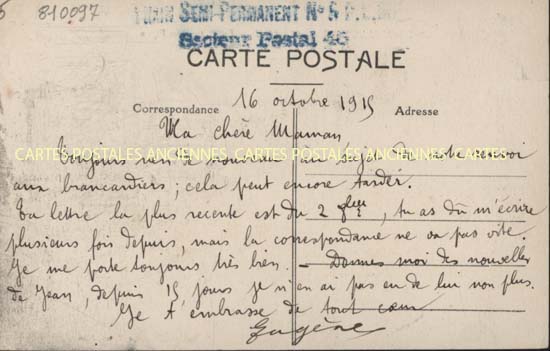 810097
TRAIN SEMI-PERMANENT N° 5
Secteur Postal 46
CARTE POSTALE
Correspondance
Adresse
16 octobre 1915
Ma chère Maman
CARTES POSTALES ANCIENNES CARTES POSTALES ANCIENNES CARTES POSTALES ANCIENNES
Toujours rien de nouveau au sujet du renvoi
aux brancardiers ; cela peut encore tarder.
Ta lettre la plus recente est du 2 , tu as dû m'écrire
plusieurs fois depuis, mais la correspondance ne va pas vite.
Je me porte toujours très bien. – Donnes moi des nouvelles
de Jean, depuis 15 jours je n'en ai pas eu de lui non plus.
Je t'embrasse de tout cœur
Eugène